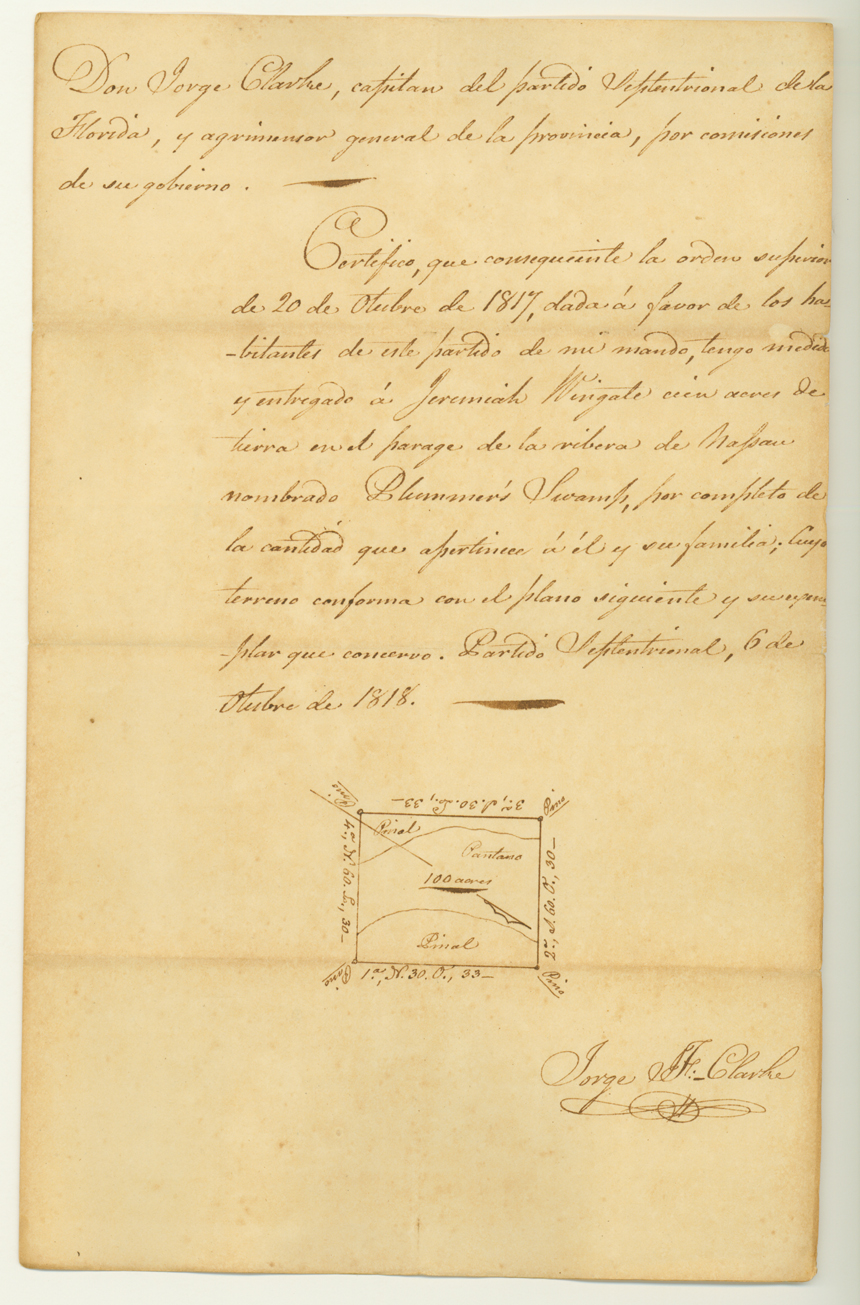 Don Jorge Clarke, capitan del partido Septentrional de la
Florida, y agrimensor general de la provincia, por comisiones
de su gobierno.
Certifico, que consequeinte la orden superior
de 20 de Otubre de 1817, dada á favor de los ha-
-bitantes de este partido de mi mando, tengo medido
y entregado á Jeremiah Wingate cien acres de
tierra en el parage de la ribera de Nassau
nombrado Plummer's Swamp, por completo de
la cantidad que apertinece á él y su familia; Cuyo
terreno conforma con el plano siguiente y su exem-
-plar que concervo. Partido Septentrional, 6 de
Otubre de 1818.
Pino
3a., S. 30. E., 33-
Pino
Pinal
Pantano
100 acres
4a., N. 60. E., 30-
2a., S. 60. O., 30-
Pinal
Pino
1a., N. 30. O., 33-
Pino
Jorge J. F:- Clarke